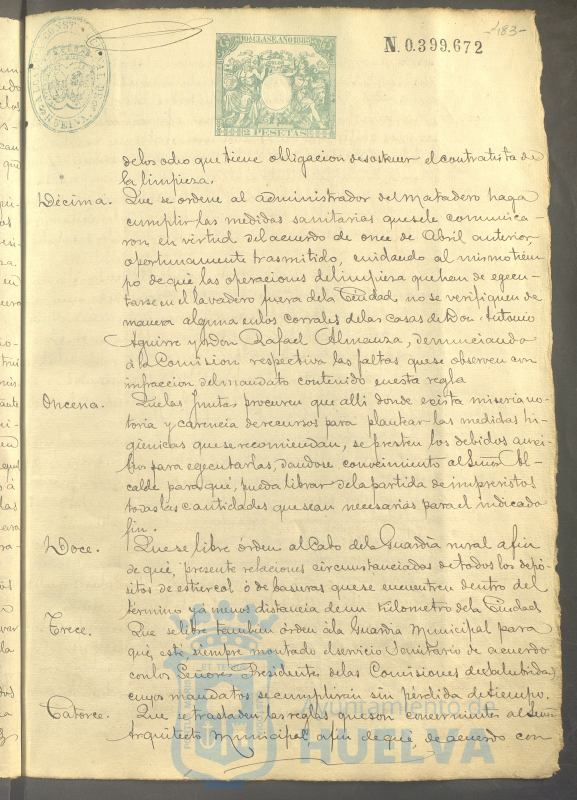 -183-
N.0.399.672
10ª CLASE AÑO 188
2 PESETAS
de los ocho que tiene obligacion de sostener el contratista de
la limpieza.
Décima. Que se ordene al administrador del Matadero haga
cumplir las medidas sanitarias que se le comunica-
ron en virtud del acuerdo de once de Abril anterior,
oportunamente trasmitido, cuidando al mismo tiem-
po de que las operaciones de limpieza que han de egecu-
tarse en el lavadero fuera de la Ciudad no se verifiquen de
manera alguna en los corrales de las casas de Don Antonio
Aguirre y Don Rafael Almanza, denunciando
á la Comision respectiva las faltas que se observen con
infraccion del mandato contenido en esta regla
Oncena. Que las Juntas procuren que alli donde exista miseria no-
toria y carencia de recursos para plantear las medidas hi-
giénicas que se recomiendan, se presten los debidos auxi-
lios para egecutarlas, dandose conocimiento al Señor Al-
calde para que, pueda librar de la partida de imprevistos
todas las cantidades que sean necesarias para el indicado
fin.
Doce. Que se libre órden al Cabo de la Guardia rural a fin
de que, presente relaciones circunstanciadas de todos los depó-
sitos de estiercol ó de basuras que se encuentren dentro del
término y á menos distancia de un Kilometro de la Ciudad
Trece. Que se libre tambien órden á la Guardia Municipal para
que esté siempre montado el servicio Sanitario de acuerdo
con los Señores Presidentes de las Comisiones de Salubridad
cuyos mandatos se cumplirán sin pérdida de tiempo.
Catorce. Que se trasladen las reglas que son concernientes al Señor
Arquitecto Municipal a fin de que, de acuerdo con
Ayuntamiento de
HUELVA